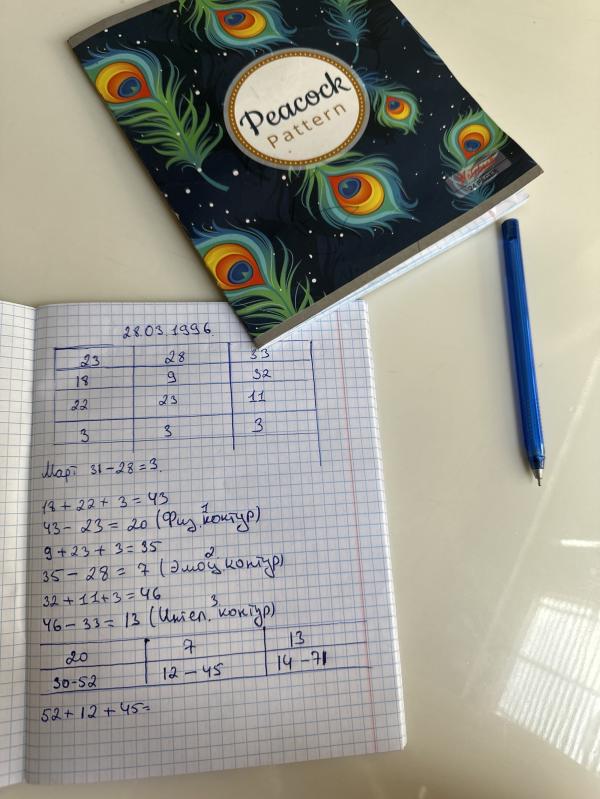 Peacock
Pattern
28.03.1996
23 28 33
18 9 32
22 23 11
3 3 3
Март 31-28=3.
18+22+3=43
43-23=20 (Физ. контур) 1
9+23+3=35
35-28=7 (Эмоц. контур) 2
32+11+3=46
46-33=13 (Интел. контур) 3
20 7 13
30-52 12-45 14-71
52+12+45=